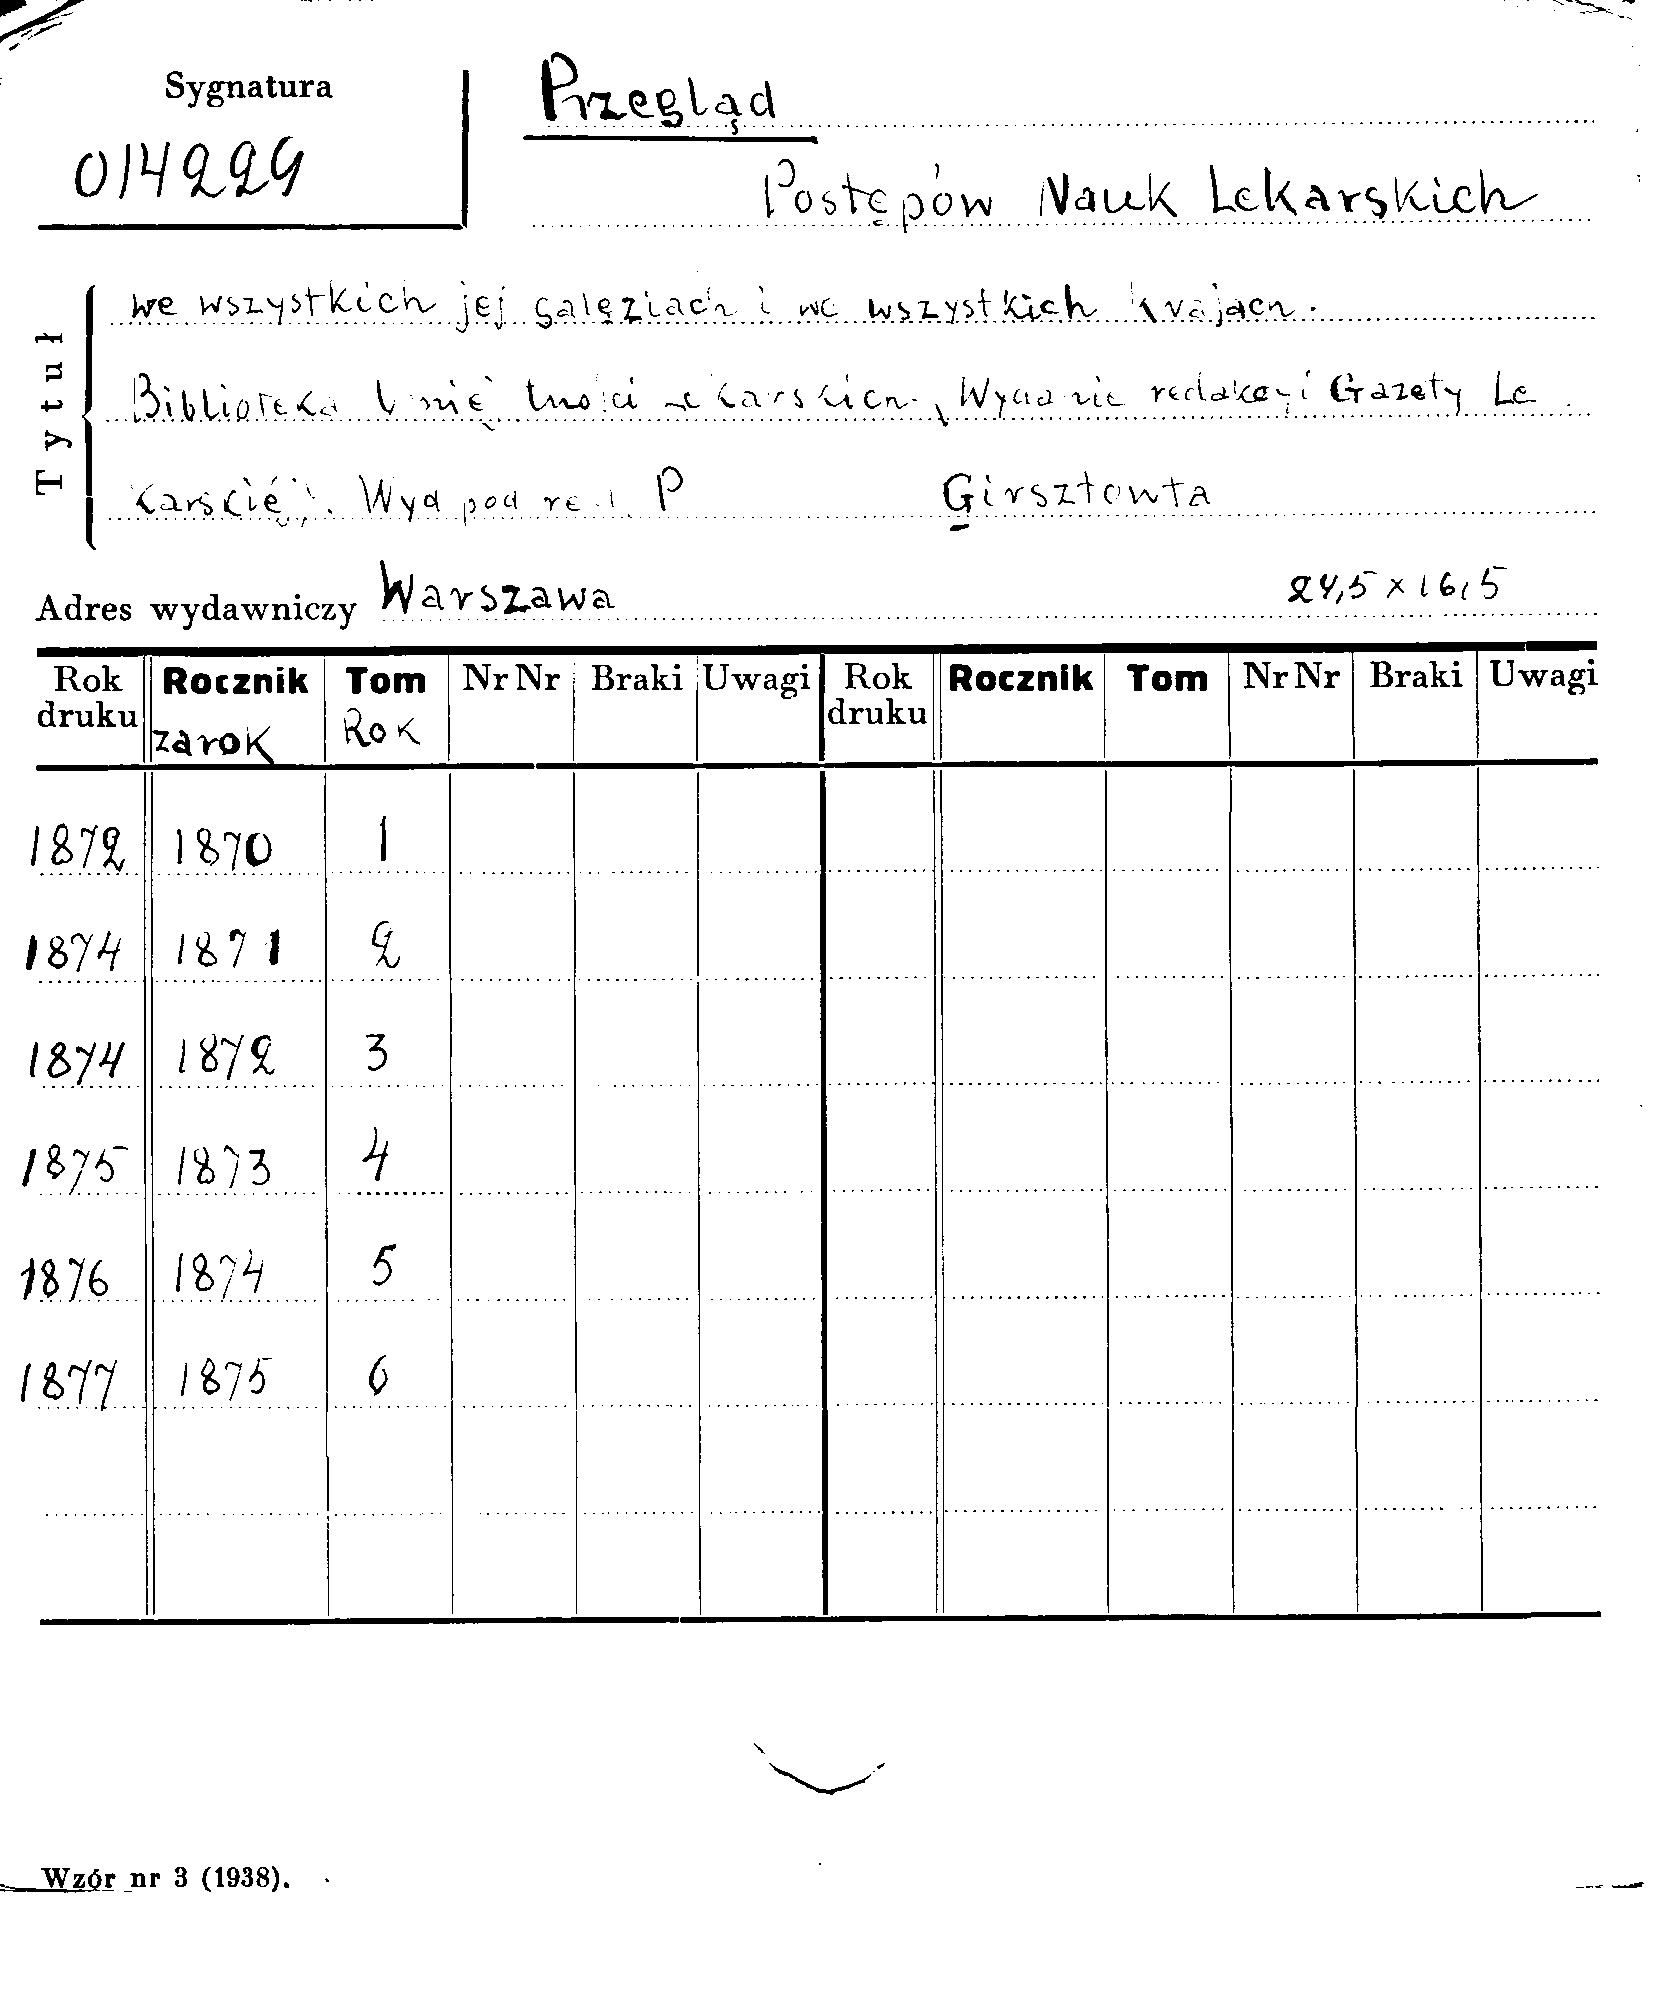 Sygnatura
014229
Przegląd
Postępów Nauk Lekarskich
Tytuł
we wszystkich jej gałęziach i we wszystkich krajach.
Biblioteka Umiejętności Lekarskich, Wydanie redakcyi Gazety Le
karskiéj. Wyd pod red. P Girsztowta
Adres wydawniczy Warszawa 24,5 × 16,5
Rok druku Rocznik Tom Nr Nr Braki Uwagi Rok druku Rocznik Tom Nr Nr Braki Uwagi
za rok Rok
1872 1870 1
1874 1871 2
1874 1872 3
1875 1873 4
1876 1874 5
1877 1875 6
Wzór nr 3 (1938).